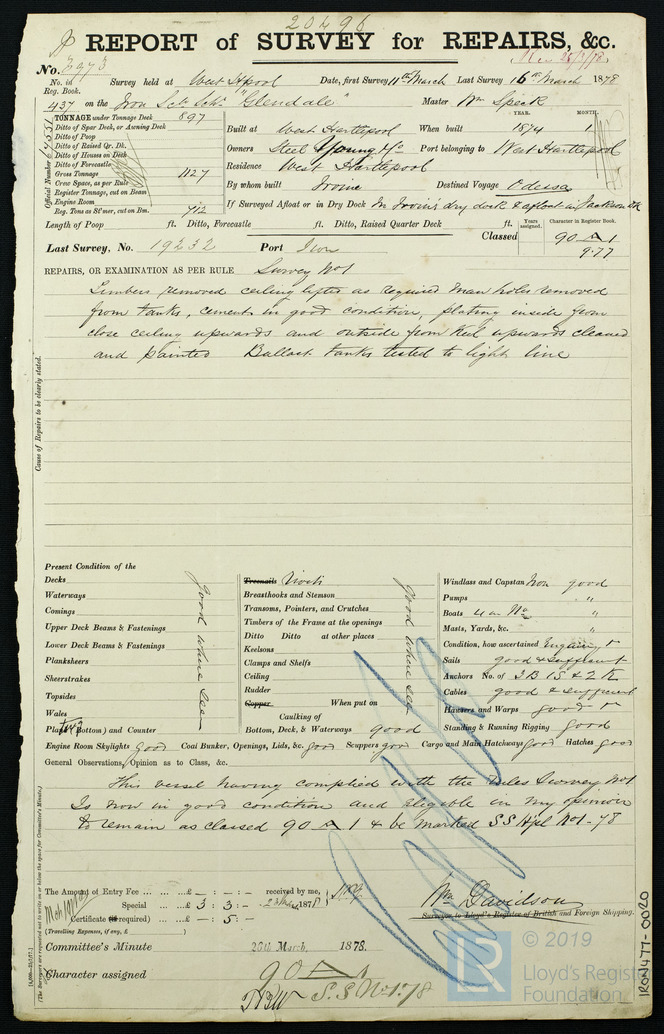 20496
REPORT of SURVEY for REPAIRS, &c.
No. 7973
No. in Reg. Book. Survey held at West Hpool Date, first Survey 11th March Last Survey 16th March 1878
437 on the Iron Scr Schr "Glendale" Master Wm Speck
TONNAGE under Tonnage Deck 897
Ditto of Spar Deck, or Awning Deck
Ditto of Poop
Ditto of Raised Qr. Dk.
Ditto of House on Deck
Ditto of Forecastle
Gross Tonnage 1127
Crew Space, as per Rule
Register Tonnage, cut on Beam
Engine Room
Reg. Tons as St'mer, cut on Bm. 712
Official Number
YEAR. MONTH.
Built at West Hartlepool When built 1874 1
Owners Steel Young & Co Port belonging to West Hartlepool
Residence West Hartlepool
By whom built Irvine Destined Voyage Odessa
If Surveyed Afloat or in Dry Dock In Irvin's dry dock & afloat in Jackson Dk
Length of Poop ft. Ditto, Forecastle ft. Ditto, Raised Quarter Deck ft.
Years assigned. Character in Register Book.
Classed 90 A 1
9.77
Last Survey, No. 19232 Port Iron
REPAIRS, OR EXAMINATION AS PER RULE Survey No 1
Limbers removed ceiling lifted as required Man holes removed
from tanks, cement in good condition, plating inside from
close ceiling upwards and outside from keel upwards cleaned
and painted Ballast tanks tested to light line
Cause of Repairs to be clearly stated.
Present Condition of the
Decks
Waterways
Comings
Upper Deck Beams & Fastenings
Lower Deck Beams & Fastenings
Planksheers
Sheerstrakes
Topsides
Wales
Plank (Bottom) and Counter
good where seen
Treenails Rivets
Breasthooks and Stemson
Transoms, Pointers, and Crutches
Timbers of the Frame at the openings
Ditto Ditto at other places
Keelsons
Clamps and Shelfs
Ceiling
Rudder
Copper When put on
Caulking of
Bottom, Deck, & Waterways good
good where seen
Windlass and Capstan Iron good
Pumps "
Boats 4 in No "
Masts, Yards, &c. "
Condition, how ascertained Enquiry
Sails good & sufficient
Anchors No. of 3B 1S & 2K
Cables good & sufficient
Hawsers and Warps good
Standing & Running Rigging good
Engine Room Skylights good Coal Bunker, Openings, Lids, &c. good Scuppers good Cargo and Main Hatchways good Hatches good
General Observations, Opinion as to Class, &c.
This vessel having complied with the rules Survey No 1
Is now in good condition and eligible in my opinion
to remain as classed 90 A 1 & be marked SS Hpl No 1-78
The Amount of Entry Fee ... £ - : - : - received by me,
Special ... £ 3 : 3 : - 1878
Certificate (if required) - : 5 : -
(Travelling Expenses, if any, £ )
Wm Davidson
Surveyor to Lloyd's Register of British and Foreign Shipping.
Committee's Minute 26th March 1878.
Character assigned 90 A 1
S.S No 1.78
[The Surveyors are requested not to write on or below the space for Committee's Minute.]
IRON477-0020
© 2019
Lloyd's Register
Foundation